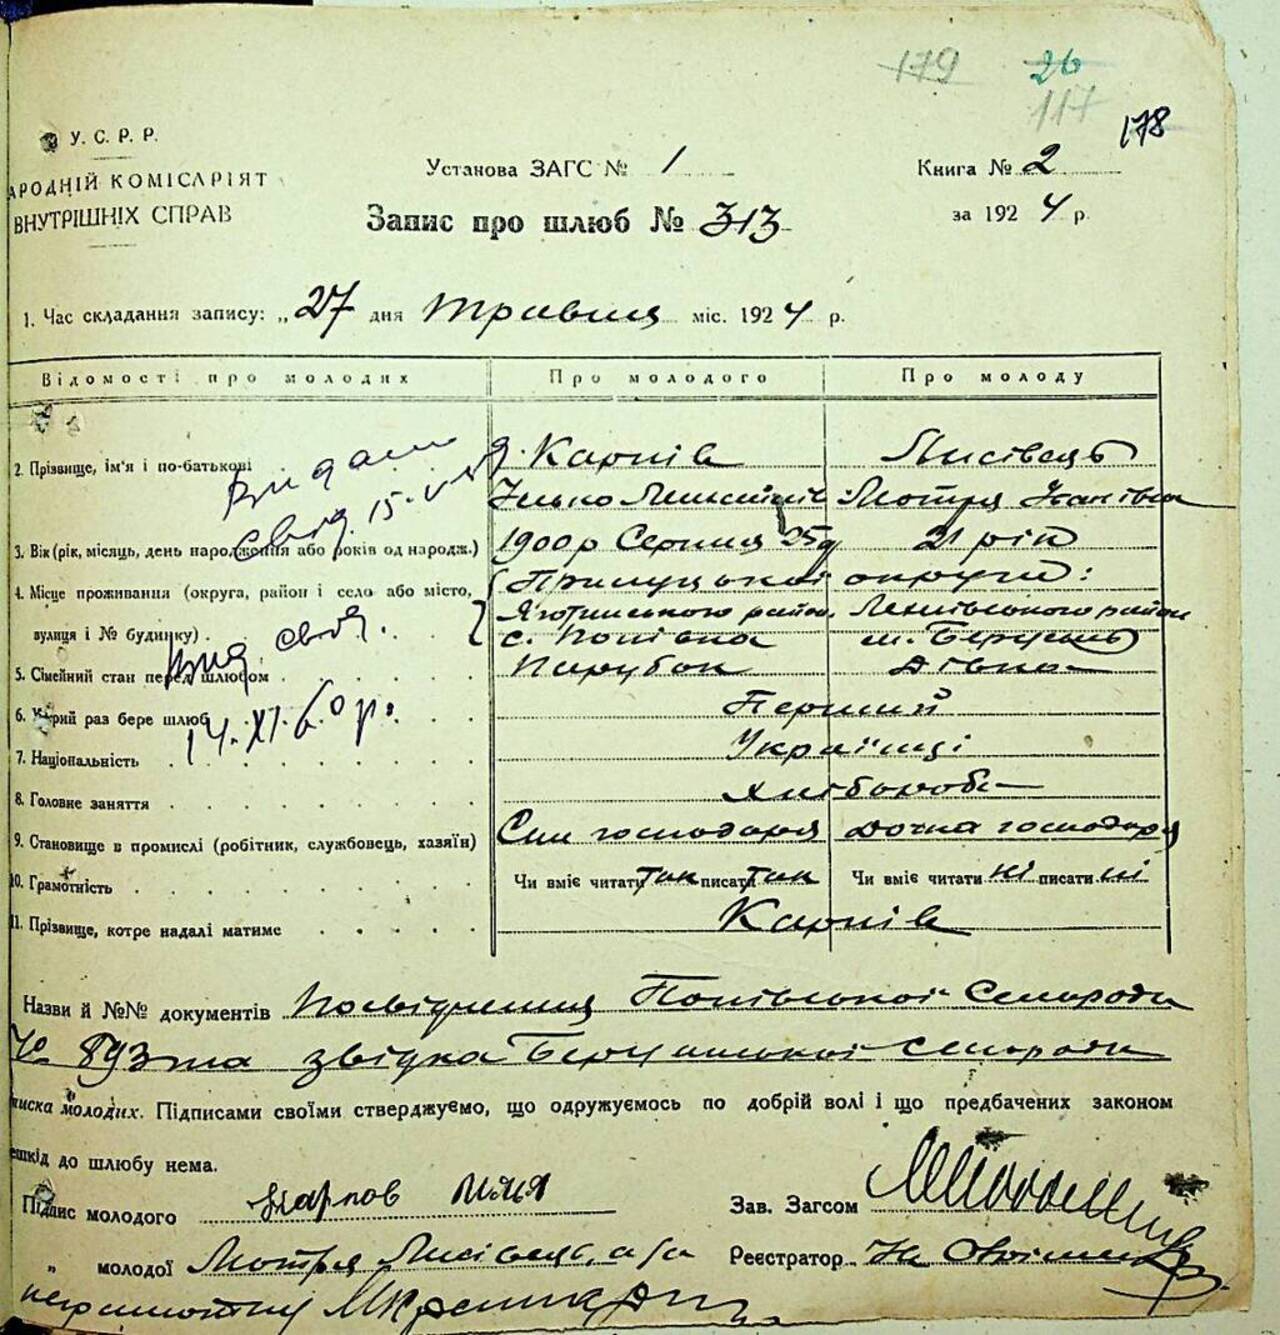 179 26
117 178
У. С. Р. Р.
АРОДНІЙ КОМІСАРІЯТ
ВНУТРІШНІХ СПРАВ
Установа ЗАГС № 1
Книга № 2
Запис про шлюб № 313
за 1924 р.
1. Час складання запису: „27 дня травня міс. 1924 р.
Відомості про молодих Про молодого Про молоду
2. Прізвище, ім'я і по-батькові Карпів Лисівець
Ілько Мотря Іванівна
3. Вік (рік, місяць, день народження або років од народж.) 1900 р Серпня 25 д 21 рік
4. Місце проживання (округа, район і село або місто, Прилуцької округи:
вулиця і № будинку) Яготинського район. район
с. Попівка
5. Сімейний стан перед шлюбом Парубок Дівка
6. Котрий раз бере шлюб Перший
7. Національність Українці
8. Головне заняття Хлібороб
9. Становище в промислі (робітник, службовець, хазяїн) Син господаря Дочка господаря
10. Грамотність Чи вміє читати так писати так Чи вміє читати ні писати ні
11. Прізвище, котре надалі матиме Карпів
Видано
свід. 15.
Вид свід.
14.XI.60 р.
Назви й №№ документів Посвідчення Попівської Сельради
№ 893 та звідка сельради
писка молодих. Підписами своїми стверджуємо, що одружуємось по добрій волі і що предбачених законом
ешкід до шлюбу нема.
Підпис молодого Карпов Илля
Зав. Загсом
„ молодої Мотря Лисівець, а за
Реєстратор
неграмотну